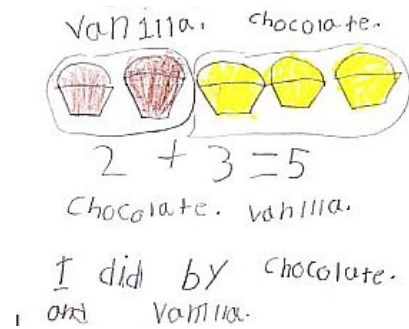 vanilla. chocolate.
2 + 3 = 5
Chocolate. vanilla.
I did by chocolate.
and vanilla.